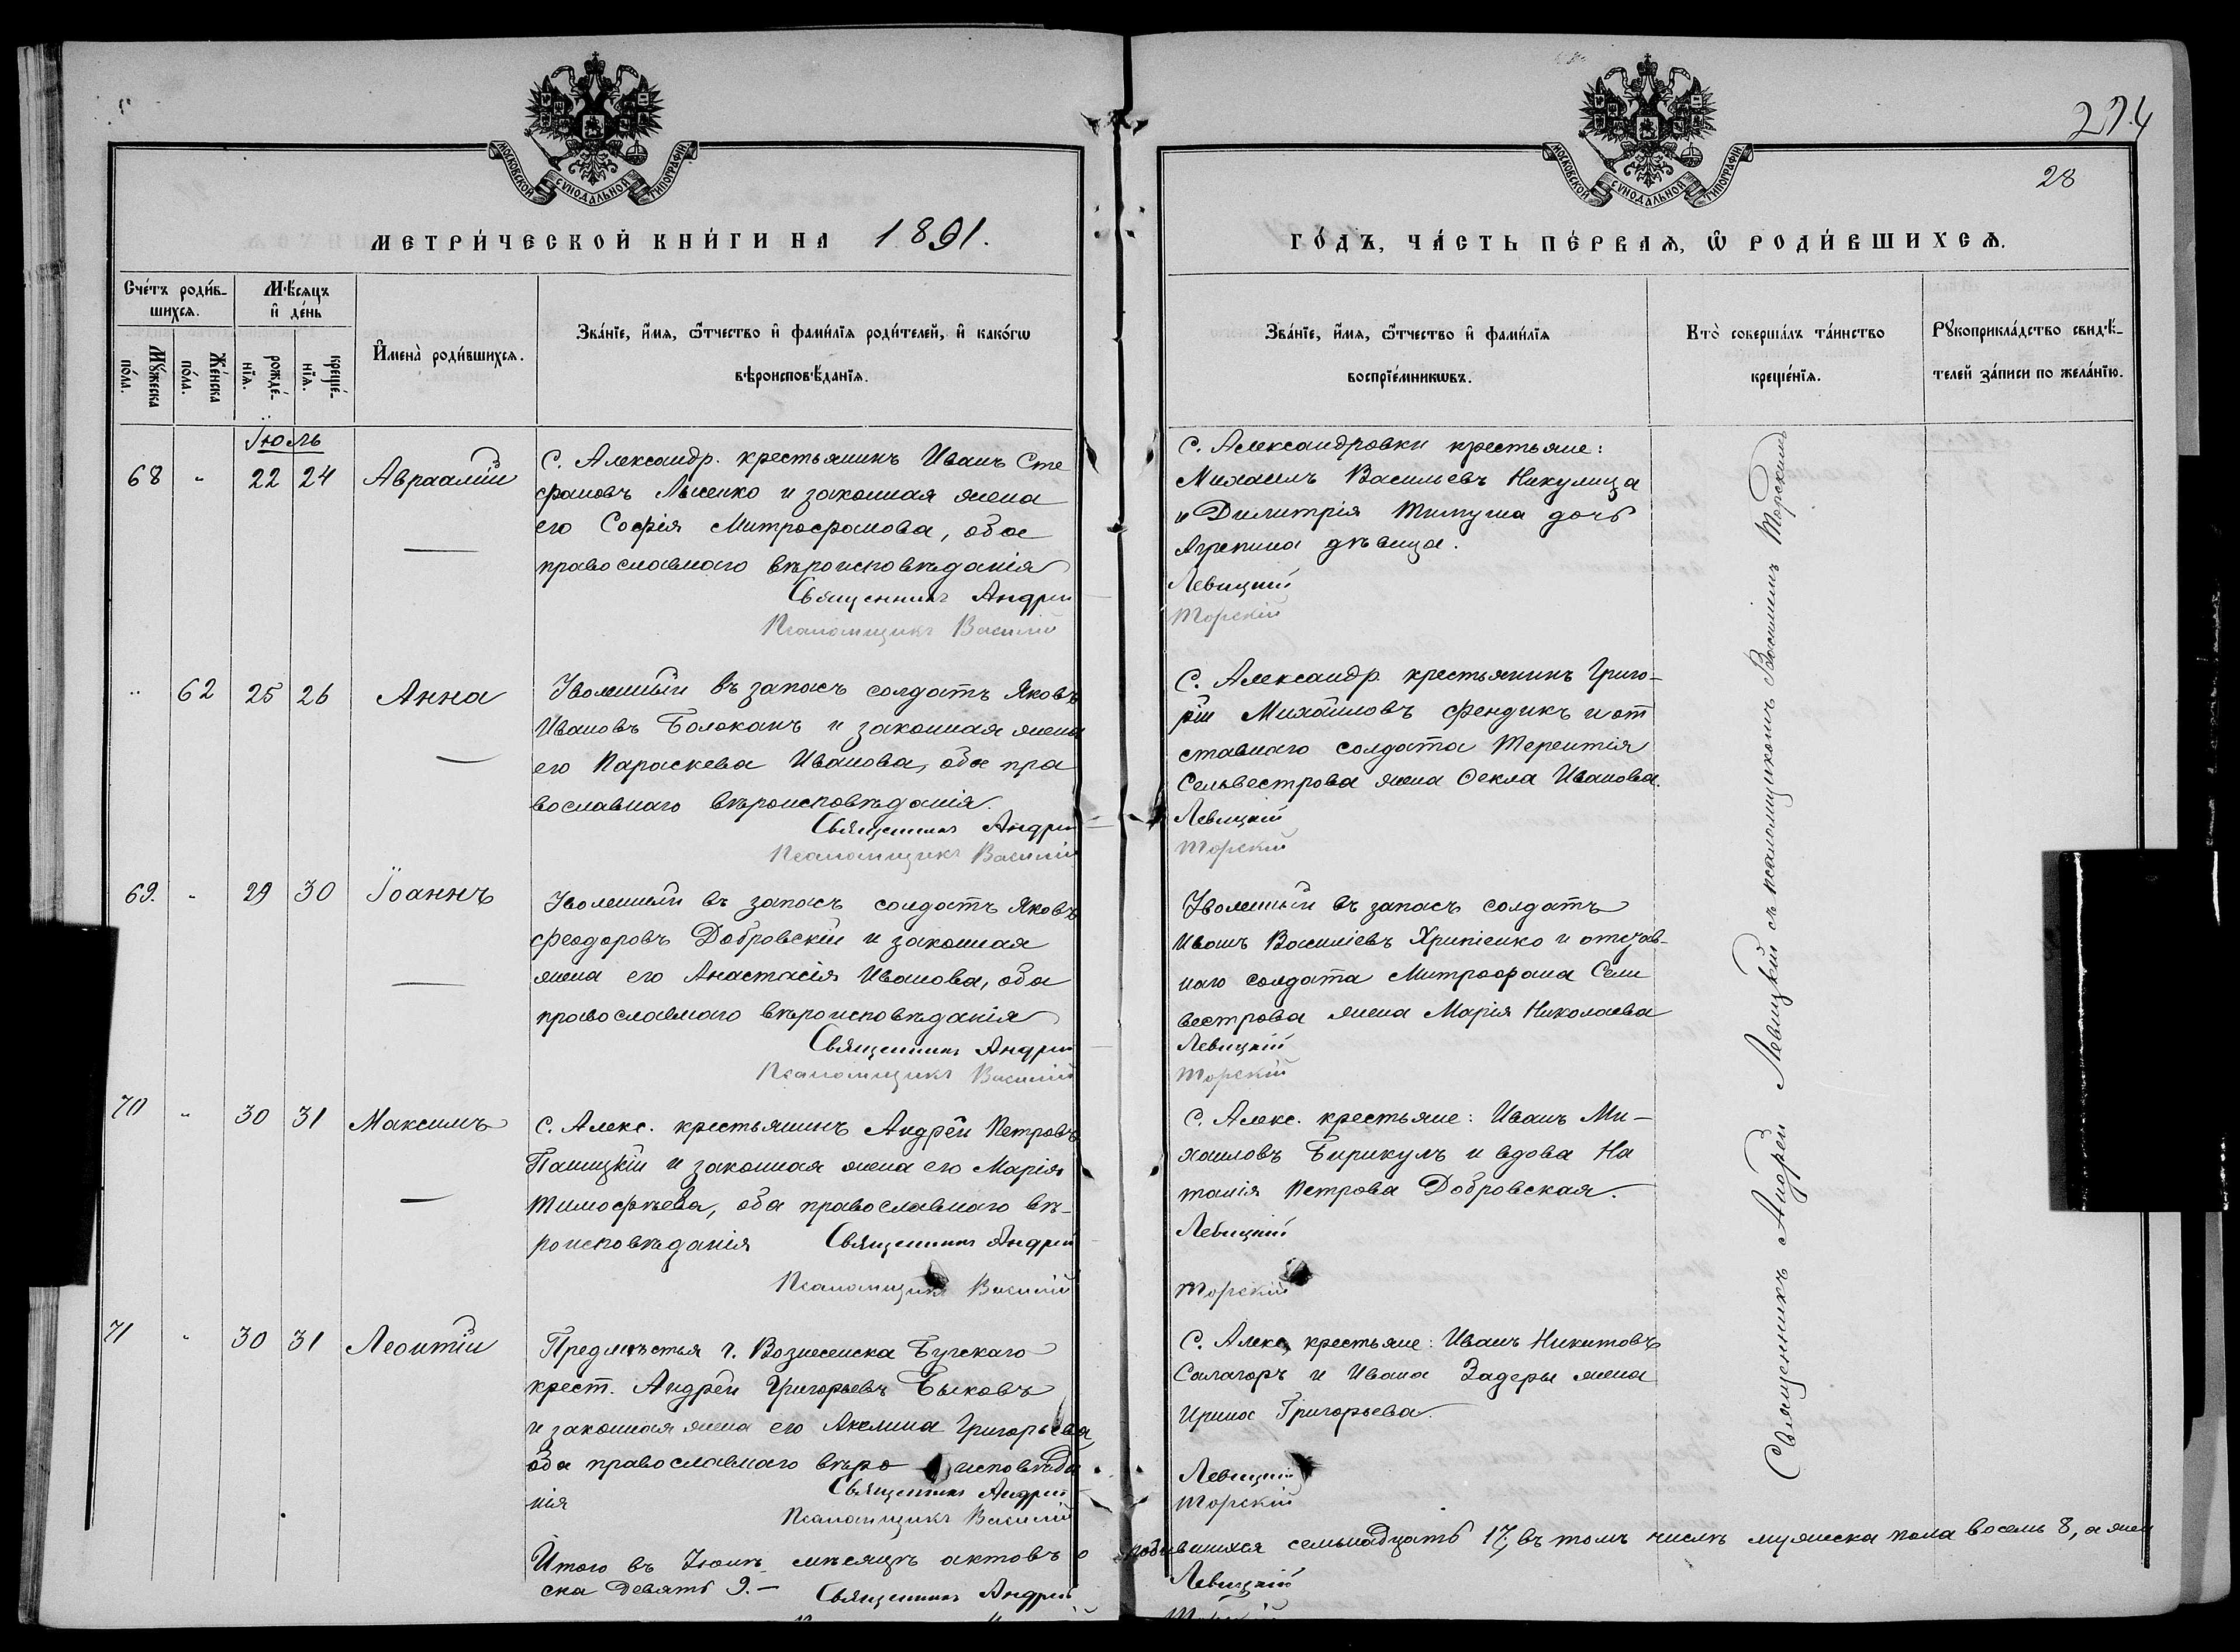 274
28
МОСКОВСКОЙ СѴНОДАЛЬНОЙ ТИПОГРАФІИ
МОСКОВСКОЙ СѴНОДАЛЬНОЙ ТИПОГРАФІИ
МЕТРИ́ЧЕСКОЙ КНИ́ГИ НА 1891.
ГО́ДЪ, ЧА́СТЬ ПЕ́РВАѦ, Ѡ҆ РОДИ́ВШИХСѦ.
Сче́тъ роди́в-
шихсѧ.
Мꙋ́жеска по́ла.
Же́нска по́ла.
Мѣ́сѧцъ
и҆ де́нь
рожде́-нїѧ.
креще́-нїѧ.
И҆мена̀ роди́вшихсѧ.
Зва́нїе, и҆́мѧ, ѻ҆́тчество и҆ фами́лїѧ роди́телей, и҆ како́гѡ
вѣроисповѣ́данїѧ.
Зва́нїе, и҆́мѧ, ѻ҆́тчество и҆ фами́лїѧ
воспрїе́мникѡвъ.
Кто̀ соверша́лъ та́инство
креще́нїѧ.
Рꙋкоприкла́дство свидѣ́-
телей за́писи по жела́нїю.
Іюль
68 " 22 24 Авраамій
С. Александр. крестьянинъ Иванъ Сте
фановъ Лысенко и законная жена
его Софія Митрофанова, обое
православнаго вѣроисповѣданія
Священникъ Андрей
Псаломщикъ Василій
С. Александровки крестьяне:
Михаилъ Васильевъ Никулица
и Димитрія Тимуша дочь
Агрепина дѣвица.
Левицкій
Торскій
" 62 25 26 Анна
Уволенный въ запасъ солдатъ Яковъ
Ивановъ Болоканъ и законная жена
его Параскева Иванова, обое пра
вославнаго вѣроисповѣданія.
Священникъ Андрей
Псаломщикъ Василій
С. Александр. крестьянинъ Григо-
рій Михайловъ Фендикъ и от
ставнаго солдата Терентія
Сельвестрова жена Ѳекла Иванова.
Левицкій
Торскій
69. " 29 30 Іоаннъ
Уволенный въ запасъ солдатъ Яковъ
Феодоровъ Добровскій и законная
жена его Анастасія Иванова, оба
православнаго вѣроисповѣданія
Священникъ Андрей
Псаломщикъ Василій
Уволенный въ запасъ солдатъ
Иванъ Василіевъ Хрипіенко и отстав-
наго солдата Митрофана Сели
вестрова жена Марія Николаева
Левицкій
Торскій
70 " 30 31 Максимъ
С. Алекс. крестьянинъ Андрей Петровъ
Паницкій и законная жена его Марія
Тимофѣева, оба православнаго вѣ-
роисповѣданія Священникъ Андрей
Псаломщикъ Василій
С. Алекс. крестьяне: Иванъ Ми-
хаиловъ Бирикулъ и вдова На
талія Петрова Добровская.
Левицкій
Торскій
71 " 30 31 Леонтій
Предмѣстья г. Вознесенска Бугскаго
крест. Андрей Григорьевъ Быковъ
и законная жена его Акелина Григорьева,
оба православнаго вѣро исповѣда
нія
Священникъ Андрей
Псаломщикъ Василій
С. Алекс. крестьяне: Иванъ Никитовъ
Салагоръ и Ивана Задеры жена
Ирина Григорьева.
Левицкій
Торскій
Священникъ Андрей Левицкій съ псаломщикомъ Василіемъ Торскимъ
Итого въ Іюлѣ мѣсяцѣ актовъ о родившихся семьнадцать 17, въ томъ числѣ мужеска пола восемь 8, а жен
ска девять 9.—
Священникъ Андрей Левицкій